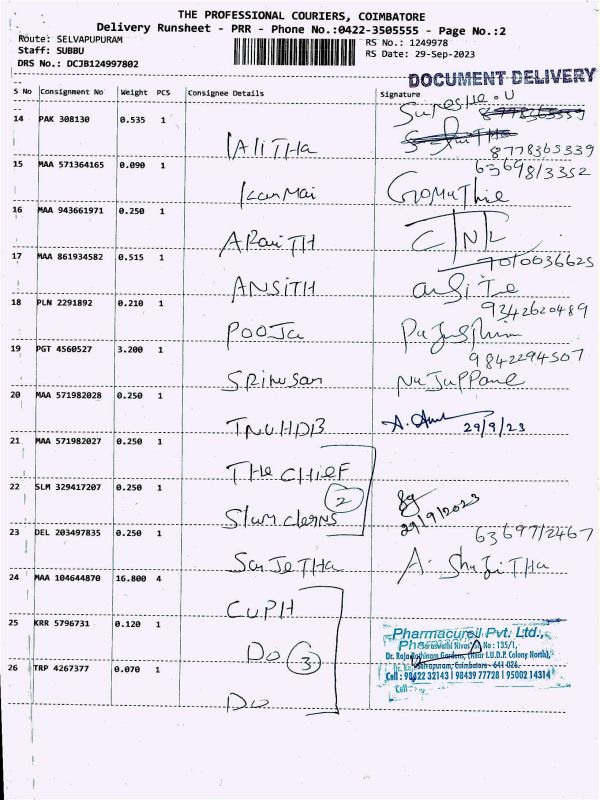 THE PROFESSIONAL COURIERS, COIMBATORE
Delivery Runsheet - PRR - Phone No.:0422-3505555 - Page No.:2
Route: SELVAPUPURAM
RS No.: 1249978
Staff: SUBBU
RS Date: 29-Sep-2023
DRS No.: DCJB124997802
DOCUMENT DELIVERY
S No Consignment No Weight PCS Consignee Details Signature
Suresh.U
14 PAK 308130 0.535 1 LAliTHa
8778365339
15 MAA 571364165 0.090 1 KanMai
6369813352
GomuThie
16 MAA 943661971 0.250 1 ARaviTH
17 MAA 861934582 0.515 1 ANSiTH
7010036625
18 PLN 2291892 0.210 1 POOJa
9342620489
19 PGT 4560527 3.200 1 SRinusan
9842294507
20 MAA 571982028 0.250 1 TNUHDB
29/9/23
21 MAA 571982027 0.250 1 THe CHiEF
2
22 SLM 329417207 0.250 1 Slum clerns
29/9/2023
23 DEL 203497835 0.250 1 SanJeTHa
6369712467
24 MAA 104644870 16.800 4 CUPH
25 KRR 5796731 0.120 1 Do
3
26 TRP 4267377 0.070 1 Do
Pharmacureil Pvt. Ltd.,
Saraswathi Nivas, No : 135/1,
Dr. Rajarathinam Gardens, (Near I.U.D.P. Colony North),
Selvapuram, Coimbatore - 641 026.
Cell : 98422 32143 | 98439 77728 | 95002 14314